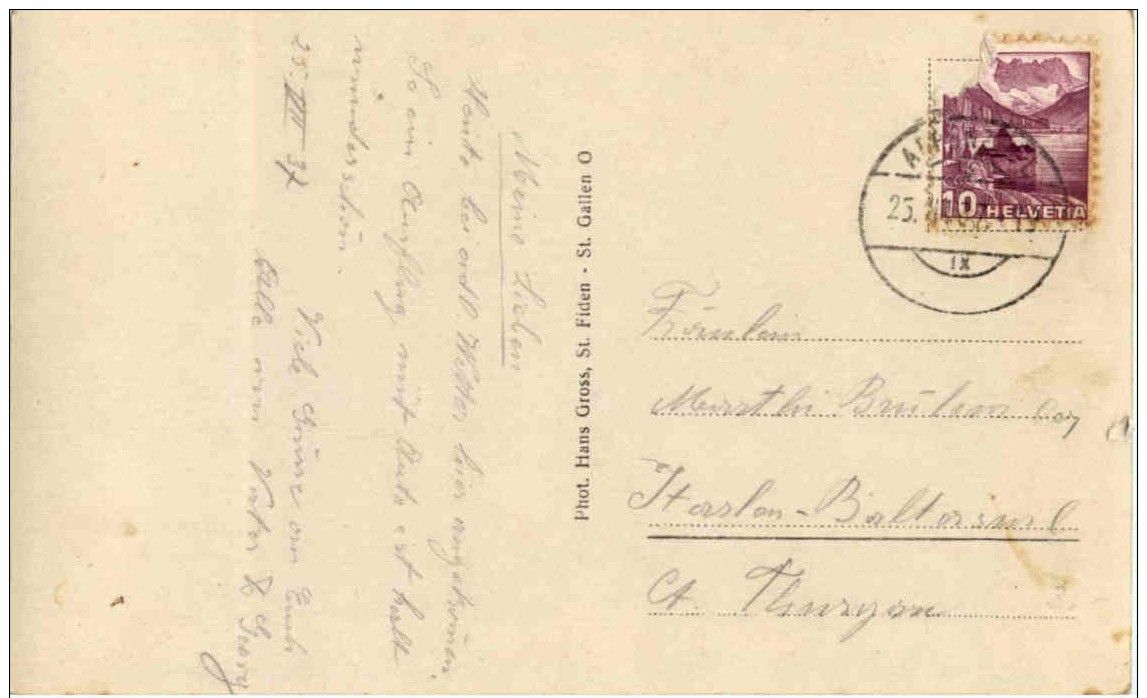 25. VIII 37
Meine Lieben
Heute bei ordl. Wetter hier angekommen.
So ein Ausflug mit Auto ist halt
wunderschön.
Viele Grüsse an Euch
Alle vom Vater & Georg
Phot. Hans Gross, St. Fiden - St. Gallen O
10 HELVETIA
25.
IX
Fräulein
Ct. Thurgau